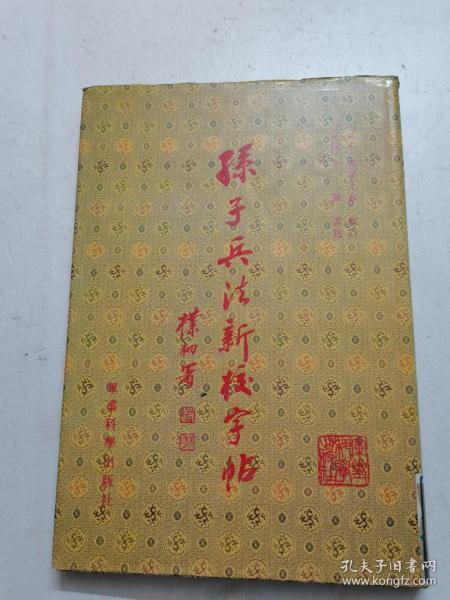 孫子兵法新校字帖
樸初署
軍事科學出版社
孔夫子旧书网
www.kongfz.com